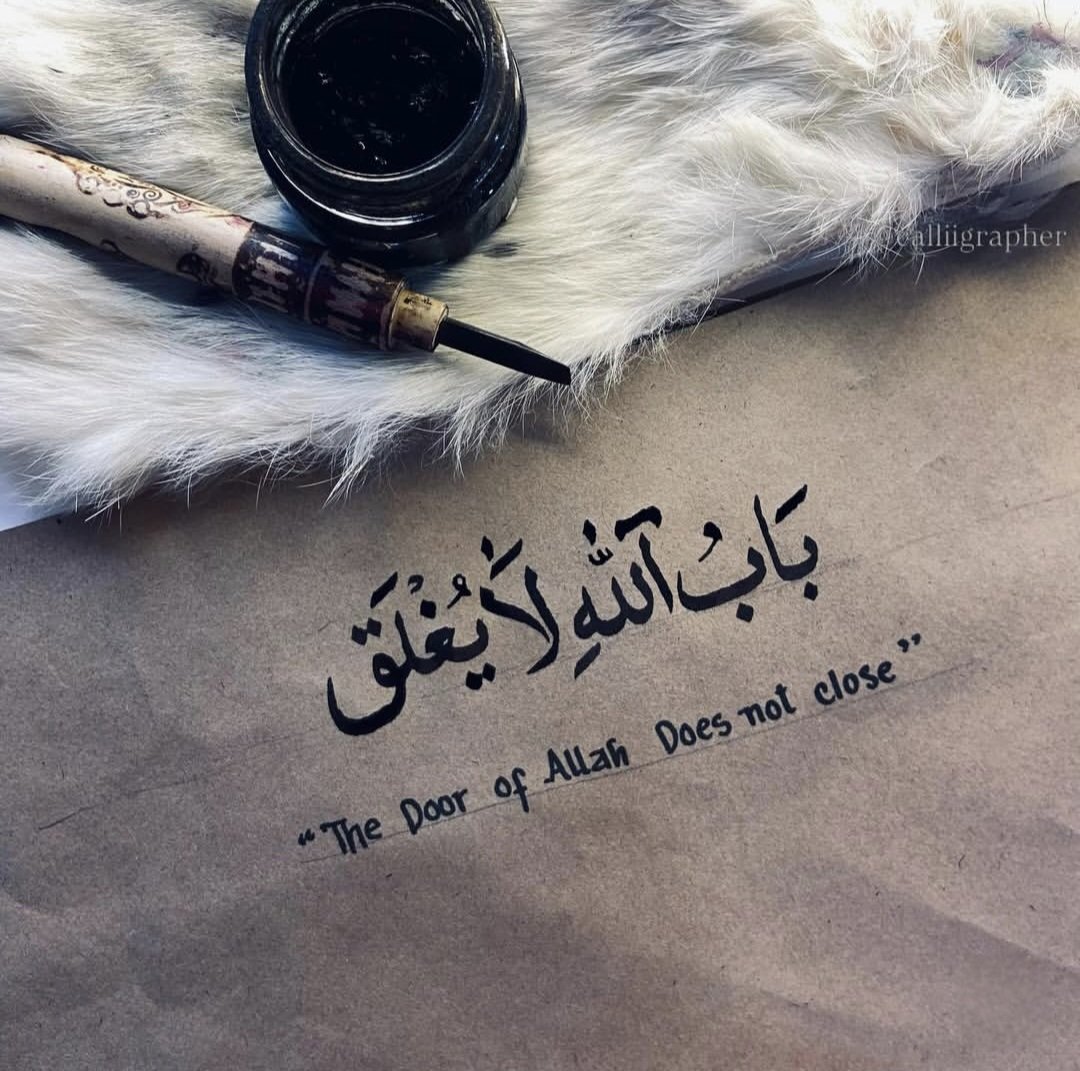 @calliigrapher
بَابُ اللّٰهِ لَا يُغْلَق
“The Door of Allah Does not close”